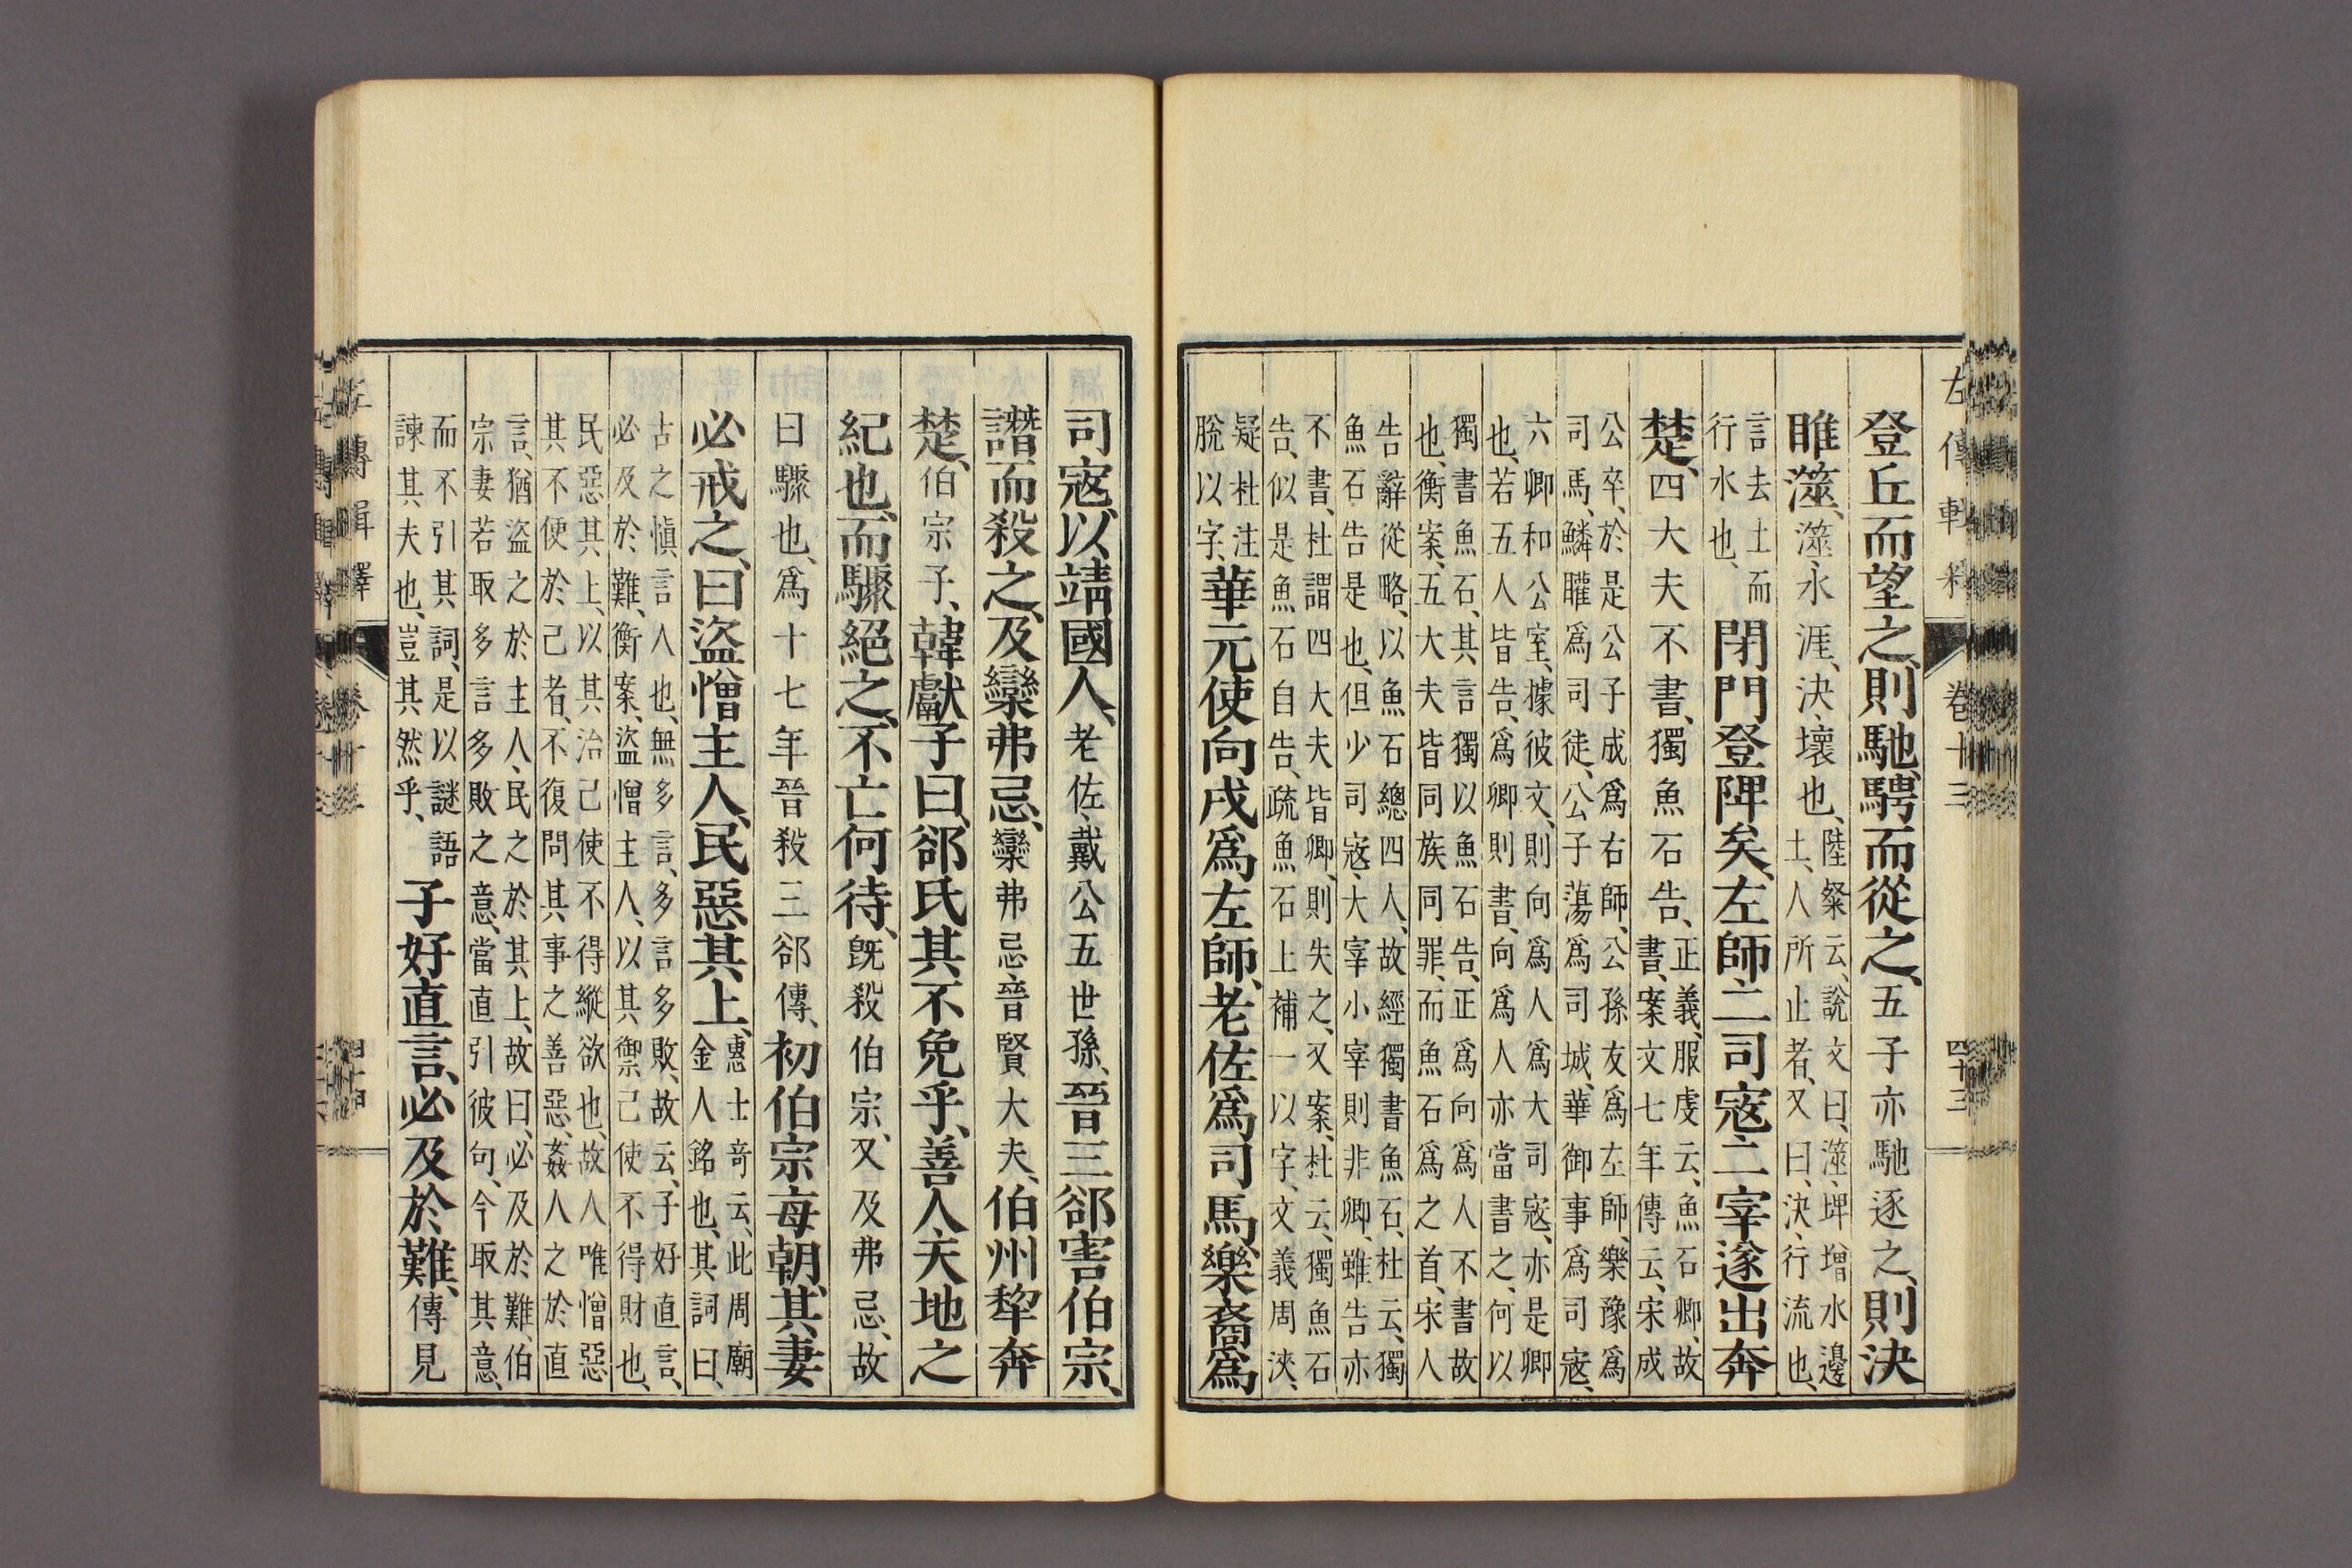 左傳輯釋 卷十三 四十三
登丘而望之、則馳騁而從之、五子亦馳逐之、則決
睢澨、澨、水涯、決、壞也、陸粲云、說文曰、澨、埤增水邊
土、人所止者、又曰、決、行流也、
言去土而
行水也、閉門登陴矣、左師二司寇二宰遂出奔
楚、四大夫不書、獨魚石告、正義、服虔云、魚石卿、故
書、案文七年傳云、宋成
公卒、於是公子成爲右師、公孫友爲左師、樂豫爲
司馬、鱗矔爲司徒、公子蕩爲司城、華御事爲司寇、
六卿和公室、據彼文、則向爲人爲大司寇、亦是卿
也、若五人皆告、爲卿則書、向爲人亦當書之、何以
獨書魚石、其言獨以魚石告、正爲向爲人不書故
也、衡案、五大夫皆同族、同罪、而魚石爲之首、宋人
告辭從略、以魚石總四人、故經獨書魚石、杜云、獨
魚石告是也、但少司寇、大宰小宰則非卿、雖告亦
不書、杜謂四大夫皆卿、則失之、又案、杜云、獨魚石
告、似是魚石自告、疏魚石上補一以字、文義周浹、
疑杜注
脫以字、華元使向戌爲左師、老佐爲司馬、樂裔爲
司寇、以靖國人、老佐、戴公五世孫、晉三郤害伯宗、
譖而殺之、及欒弗忌、欒弗忌晉賢大夫、伯州犂奔
楚、伯宗子、韓獻子曰、郤氏其不免乎、善人、天地之
紀也、而驟絕之、不亡何待、既殺伯宗、又及弗忌、故
曰驟也、爲十七年晉殺三郤傳、初伯宗每朝、其妻
必戒之、曰盜憎主人、民惡其上、惠士奇云、此周廟
金人銘也、其詞曰、
古之愼言人也、無多言、多言多敗、故云、子好直言、
必及於難、衡案、盜憎主人、以其禦己使不得財也、
民惡其上、以其治己使不得縱欲也、故人唯憎惡
其不便於己者、不復問其事之善惡、姦人之於直
言、猶盜之於主人、民之於其上、故曰、必及於難、伯
宗妻若取多言多敗之意、當直引彼句、今取其意、
而不引其詞、是以謎語
諫其夫也、豈其然乎、子好直言、必及於難、傳見